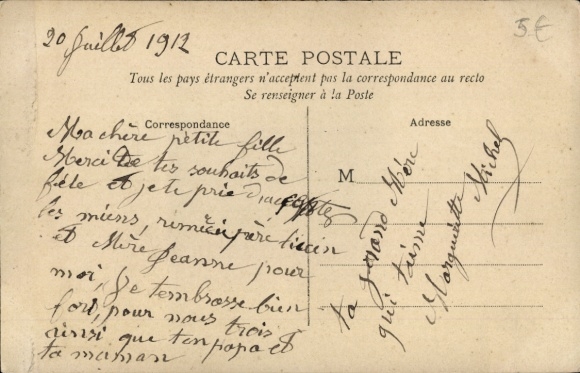 20 Juillet 1912
5€
CARTE POSTALE
Tous les pays étrangers n'acceptent pas la correspondance au recto
Se renseigner à la Poste
Correspondance
Ma chère petite fille
Merci de tes souhaits de
fête et je te prie d'accepter
les miens, remercie père Lucien
et Mère Jeanne pour
moi, je t'embrasse bien
fort, pour nous trois
ainsi que ton papa et
ta maman
Adresse
M
ta grand Mère
qui t'aime
Marguerite Michel